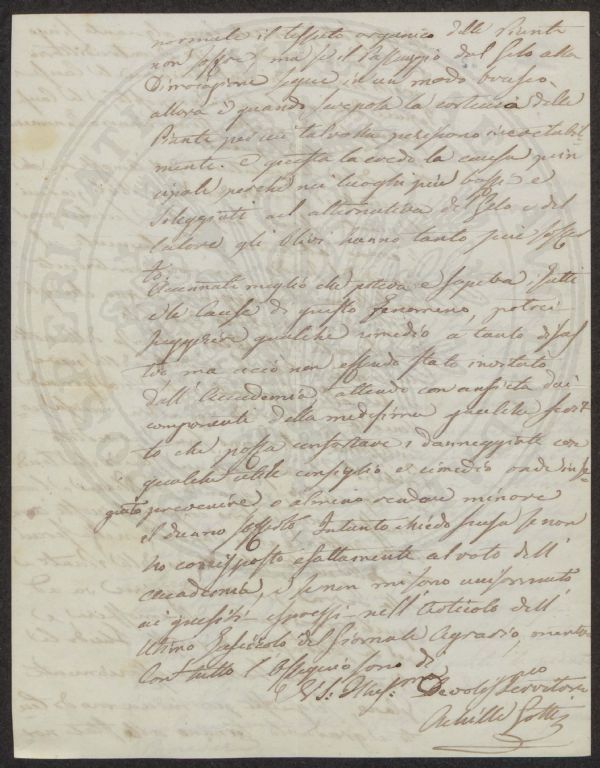 normale il tessuto organico delle Piante
non soffre, ma se il Passaggio dal Gelo alla
Dimojazione segue in un modo brusco
allora è quando screpola la corteccia delle
Piante per cui talvolta periscono inevitabil-
mente. e questa la credo la causa prin
cipale perchè nei luoghi più bassi e
soleggiati nell'alternativa del Gelo e del
Calore gli Olivi hanno tanto più soffer
to.
Accennati meglio che poteva e sapeva i fatti
e le Cause di questo Fenomeno, potrei
suggerire qualche rimedio a tanto disas
tro ma a ciò non essendo stato invitato
dall'Accademia attendo con ansietà dai
componenti della medesima qualche scrit-
to che possa confortare i danneggiati con
qualche utile consiglio e rimedio onde in se-
guito prevenire o almeno rendere minore
il danno sofferto. Intanto chiedo scusa se non
ho corrisposto esattamente al voto dell'
Accademia, e se non mi sono uniformato
ai quesiti espressi nell'Articolo dell'
Ultimo Fascicolo del Giornale Agrario, mentre
Con tutto l'Ossequio sono di
V. S. Illus.ma Devotis. Servitore
Achille